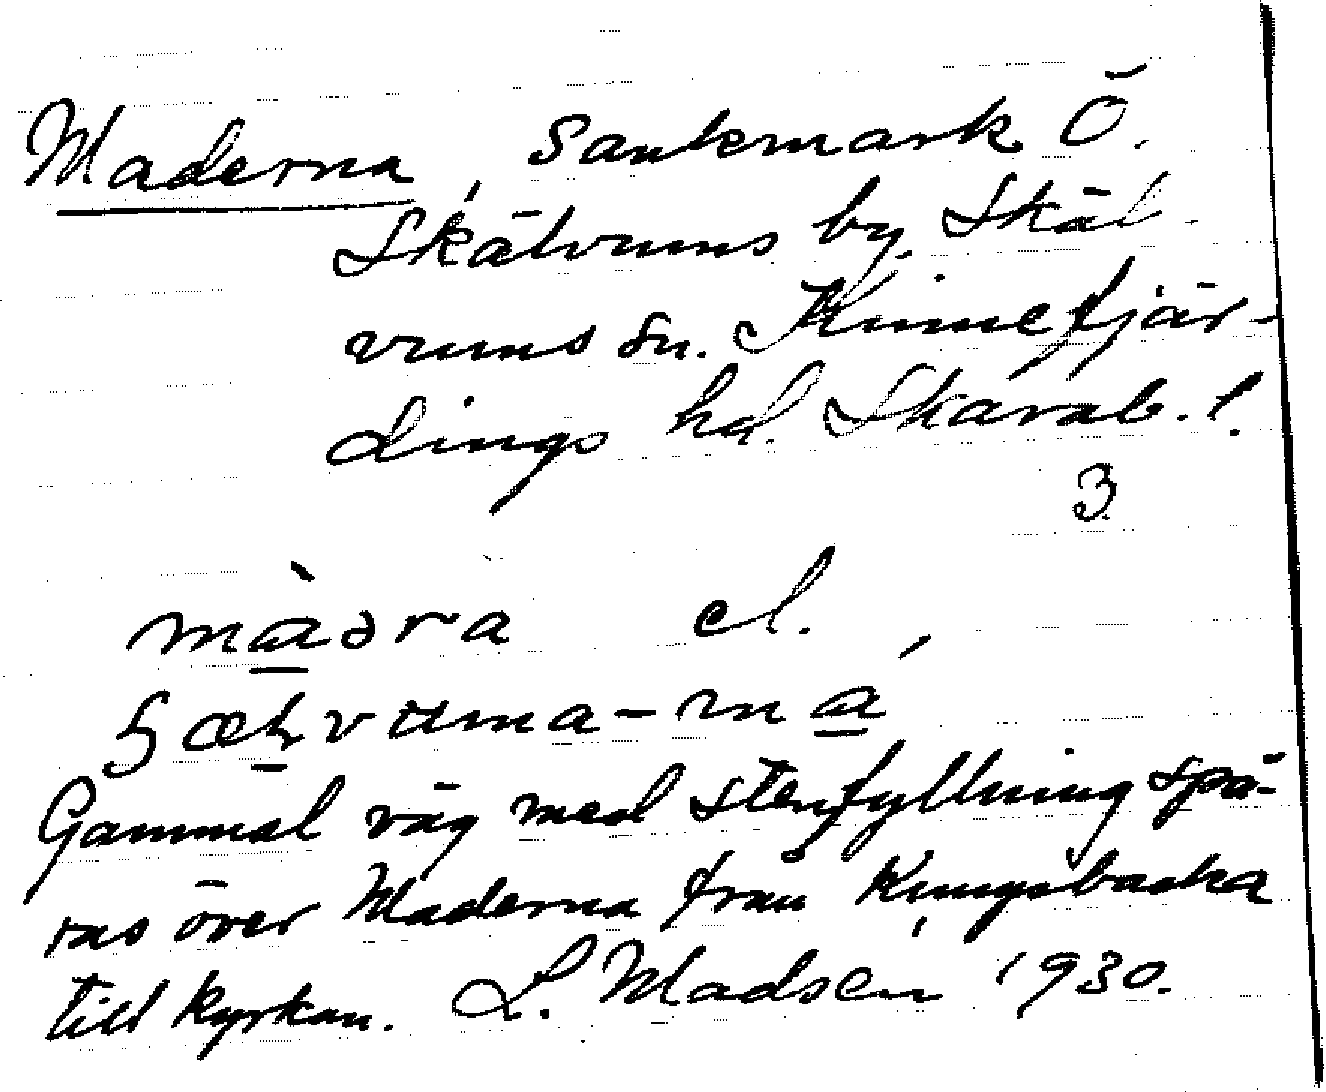 Maderna, Sankmark Ö.
Skälvums by. Skäl-
vums sn. Kinnefjär-
dings hd. Skarab. l.
3
màdra el.
Gammal väg med stenfyllning spå-
ras över Maderna från Kungsbacka
till kyrkan. L. Madsén 1930.